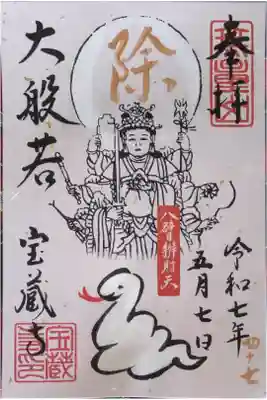 奉拝
除
大般若
八臂辯財天
令和七年
五月七日
四十七
宝蔵寺
宝蔵寺印